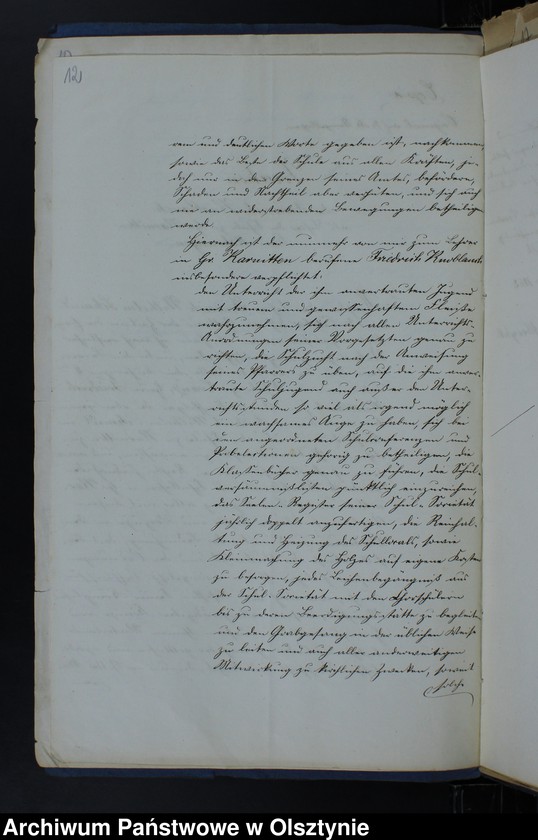 12
rem und deutlichen Worte gegeben ist, nachkommen,
sowie das Beste der Schule aus allen Kräften, je-
doch nur in den Grenzen seines Amtes, befördern,
Schaden und Nachtheil aber verhüten, und sich auch
nie an widerstrebenden Bewegungen betheiligen
werde
Hiernach ist der nunmehr von mir zum Lehrer
in Gr. Karnitten berufene Friedrich Knoblauch
insbesondere verpflichtet:
den Unterricht der ihm anvertrauten Jugend
mit treuem und gewissenhaftem Fleiße
wahrzunehmen, sich nach allen Unterrichts-
Anordnungen seiner Vorgesetzten genau zu
richten, die Schulzucht nach der Anweisung
seines Pfarrers zu üben, auf die ihm anver-
traute Schuljugend auch außer den Unter-
richtsstunden so viel als irgend möglich
ein wachsames Auge zu haben, sich bei
den angeordneten Schulconferenzen und
Probelectionen gehörig zu betheiligen, die
Klassenbücher genau zu führen, die Schul-
versäumnißlisten pünktlich einzureichen,
das Seelen-Register seiner Schul-Societät
jährlich doppelt anzufertigen, die Reinhal-
tung und Heizung des Schullocals, sowie
Kleinmachung des Holzes auf eigene Kosten
zu besorgen, jedes Leichenbegängniß aus
der Schul-Societät mit den Chorschülern
bis zu deren Beerdigungsstätte zu begleiten
und den Grabgesang in der üblichen Weise
zu leiten und auch aller anderweitigen
Mitwirkung zu kirchlichen Zwecken, soweit
solche
Archiwum Państwowe w Olsztynie